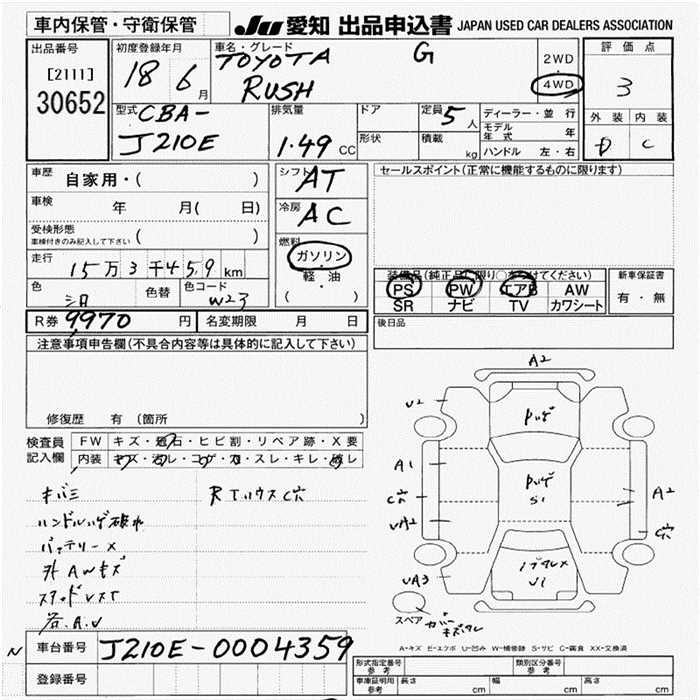 車内保管・守衛保管
JU 愛知 出品申込書 JAPAN USED CAR DEALERS ASSOCIATION
出品番号
[2111]
30652
初度登録年月
18 6月
車名・グレード
TOYOTA G
RUSH
2WD
4WD
評価点
3
外装 内装
D C
型式 CBA-
J210E
排気量
1.49 CC
ドア
形状
定員 5人
積載 kg
ディーラー・並行
モデル年式 年
ハンドル 左・右
車歴 自家用・( )
車検 年 月( 日)
受検形態
車検付きのみ記入して下さい ( )
走行 15万3千459km
色 シロ 色替 色コード W23
シフト AT
冷房 AC
燃料
ガソリン
軽・油
( )
セールスポイント(正常に機能するものに限ります)
装備品(純正品に限り○をつけてください)
PS PW エアB AW
SR ナビ TV カワシート
新車保証書
有・無
R券 9970 円 名変期限 月 日
後日品
注意事項申告欄(不具合内容等は具体的に記入して下さい)
修復歴 有 (箇所 )
検査員記入欄
FW キズ・飛石・ヒビ割・リペア跡・X要
内装 キズ・汚レ・コゲ・穴・スレ・キレ・破レ
キバミ RTハウスC穴
ハンドルハゲ破れ
バッテリーX
外AWキズ
スタッドレスT
谷.A.U
A2
U2
ハゲ
A1
C穴
UA2
ハゲ
S1
A2
C穴
UA3
U1
スペア カバーキズワレ
A-キズ E-エクボ U-凹み W-補修跡 S-サビ C-腐食 XX-交換済
N 車台番号 J210E-0004359
登録番号
形式指定番号 参考
類別区分番号 参考
車庫証明用 参考 長さ cm 幅 cm 高さ cm